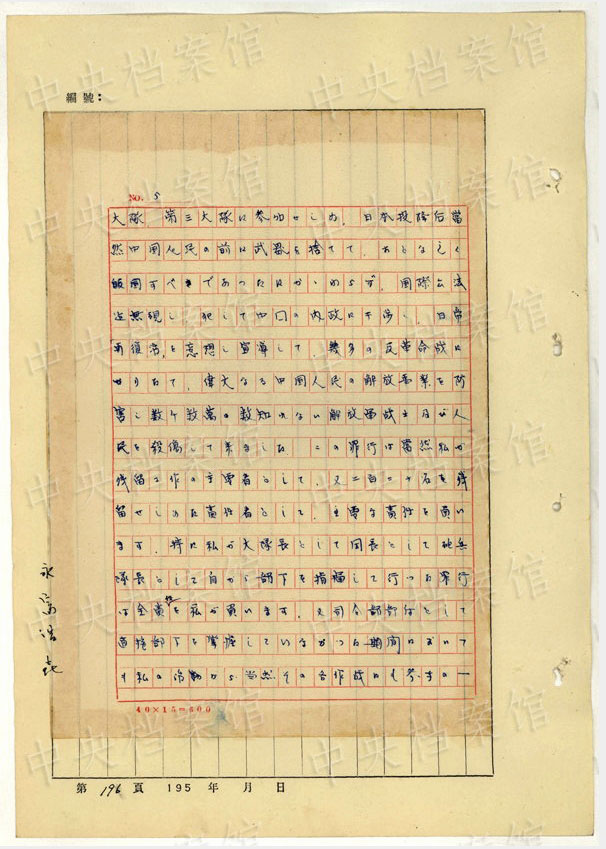 編號：
No. 5
大隊、第三大隊に参加せしめ、日本投降后当
然中国人民の前に武器を捨てて、おとなしく
帰国すべきであったにかゝわらず、国際公法
を無視し、犯して中国の内政に干渉し、日帝
再復活を意想し宣導して、幾多の反革命戦に
かりたて、偉大なる中国人民の解放事業を防
害し数千数萬の数知れない解放軍戦士及び人
民を殺傷して来ました。この罪行は当然私が
残留工作の主要者として、又二百二十名を残
留せしめた責任者として、主要な責任を負い
ます。特に私が大隊長として団長として砲兵
隊長として自から部下を指揮して行った罪行
は全責任を私が負います。又司令部部付として
直接部下を掌握していなかった期間において
も私の活動から当然その各作戦にも多少の一
40×15=600
永富博之
第 196 頁 195 年 月 日
中央档案馆